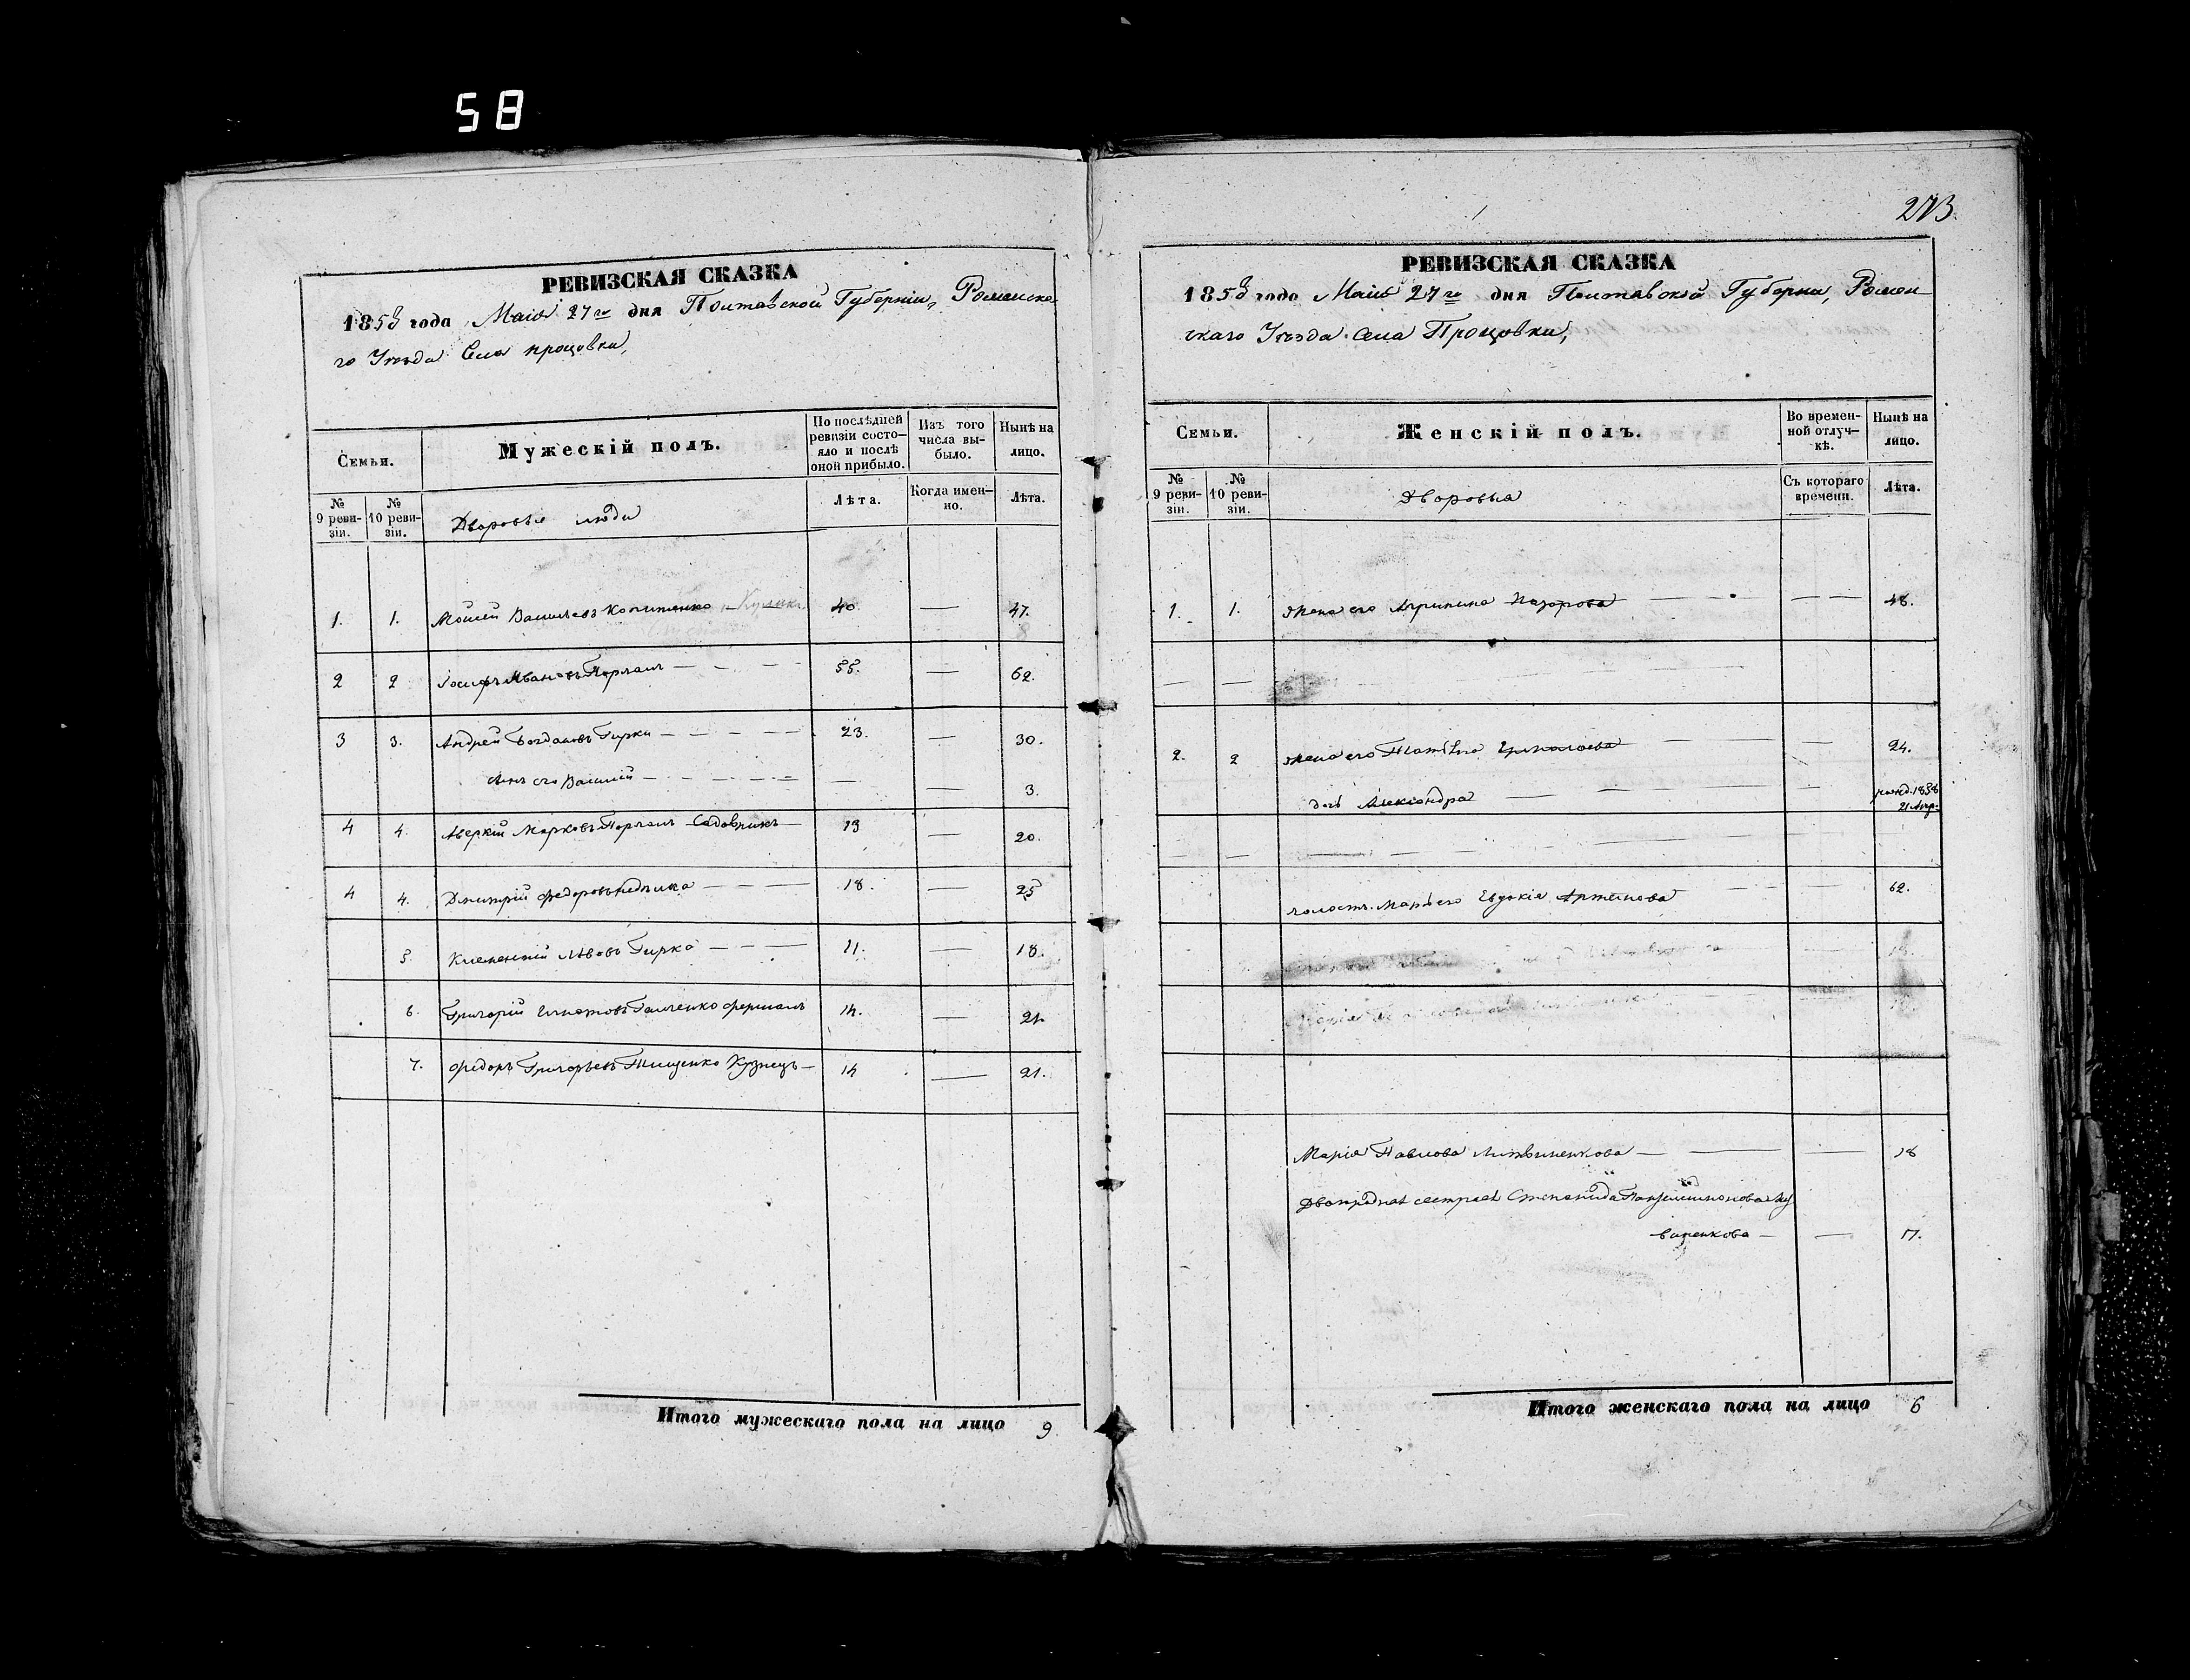 58
РЕВИЗСКАЯ СКАЗКА
1858 года Маія 27го дня Полтавской Губерніи, Роменска
го Уѣзда Села процовки,
Семьи.
Мужескій полъ.
По послѣдней ревизіи состо-
яло и послѣ оной прибыло.
Изъ того числа вы-
было.
Нынѣ на лицо.
№ 9 реви-
зіи.
№ 10 реви-
зіи.
Дворовые люди
Лѣта.
Когда имен-
но.
Лѣта.
1. 1. Мойсей Васильевъ 40 — 47.
2 2 Іосифъ Ивановъ — 55. — 62.
3 3. Андрей Богдановъ Гирка — 23. — 30.
сынъ его Василій — — — 3.
4 4. Аверкій Марковъ Садовникъ — 13 — 20.
4 4. Дмитрій Федоровъ — 18. — 25
5. Клементій Львовъ Гирка — 11. — 18.
6. Григорій Галченко 14. — 21.
7. Федоръ Григорьевъ Тищенко Кузнецъ — 14 — 21.
Итого мужескаго пола на лицо 9
273.
РЕВИЗСКАЯ СКАЗКА
1858 года Маія 27го дня Полтавской Губерни, Ромен
скаго Уѣзда села Процовки,
Семьи.
Женскій полъ.
Во времен-
ной отлуч-
кѣ.
Нынѣ на лицо.
№ 9 реви-
зіи.
№ 10 реви-
зіи.
Дворовыя
Съ котораго времени.
Лѣта.
1. 1. Жена его Агрипина Назарова — — 48.
2. 2 Жена его Татьяна — — 24.
дочь Александра — — рожд. 1858
21 Апр.
холостъ. Мать его Евдокія Артемова — — 62.
Марія Павлова Литвиненкова — — 18
Двоюродная сестра ей Степанида
— — 17.
Итого женскаго пола на лицо 6